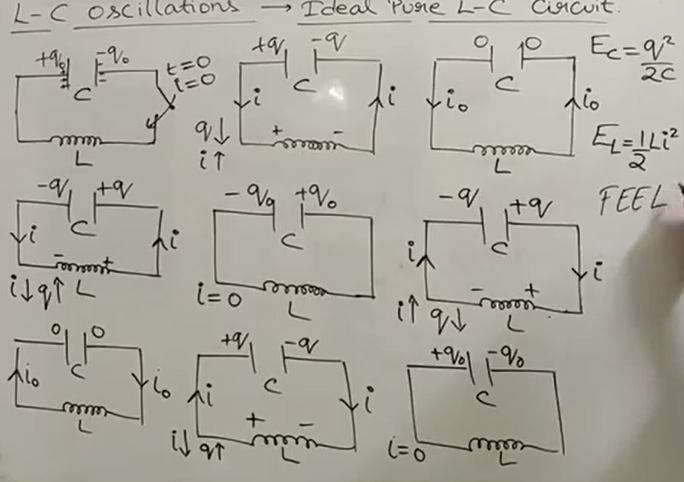 L-C Oscillations → Ideal Pure L-C Circuit.
+q₀ -q₀ t=0
i=0
C
L
+q -q
C
i i
q↓ + -
i↑
0 0
C
i₀ i₀
L
E_C = q²/2C
E_L = 1/2 Li²
FEEL
-q +q
C
i i
- +
i↓ q↑ L
-q₀ +q₀
C
i=0 L
-q +q
C
i i
- +
i↑ q↓ L
0 0
C
i₀ i₀
L
+q -q
C
i i
+ -
i↓ q↑ L
+q₀ -q₀
C
i=0 L